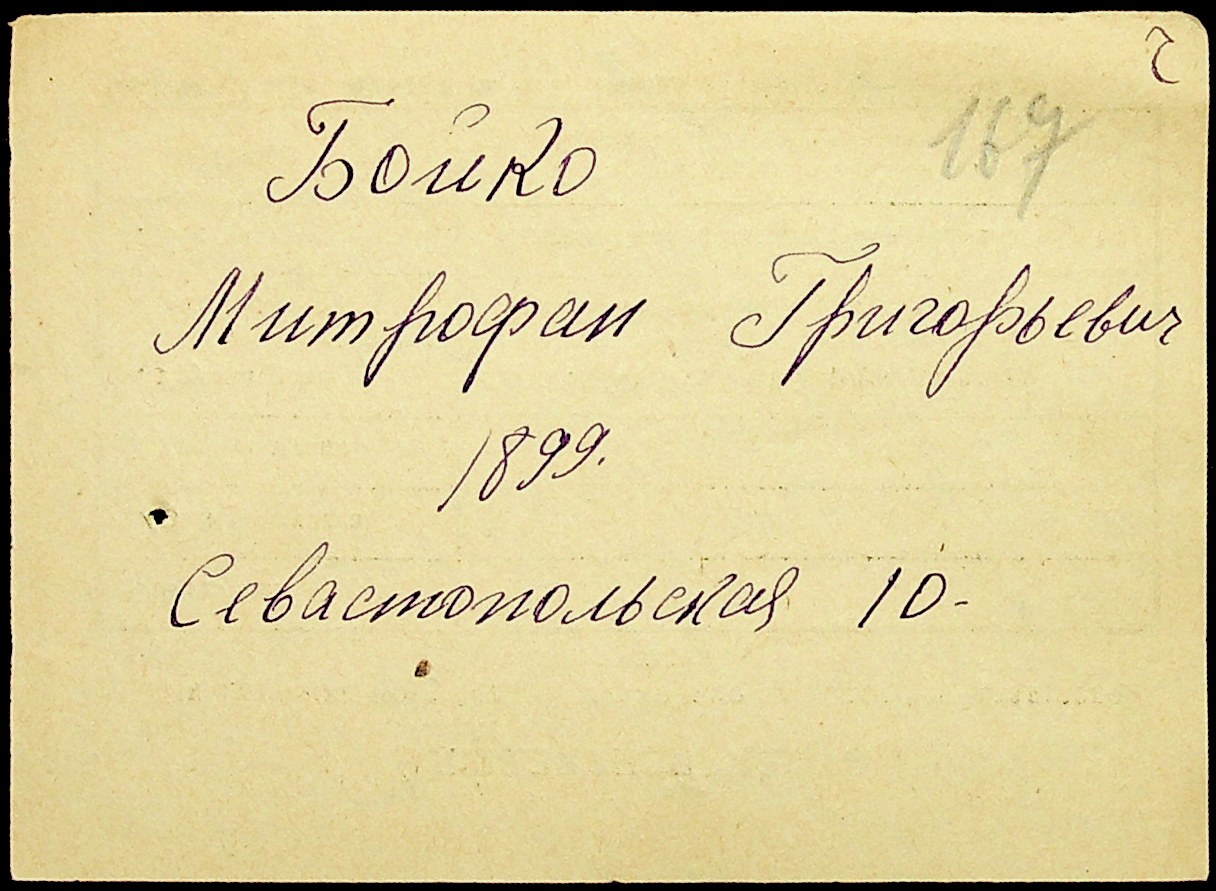 167
Бойко
Митрофан Григорьевич
1899.
Севастопольская 10-